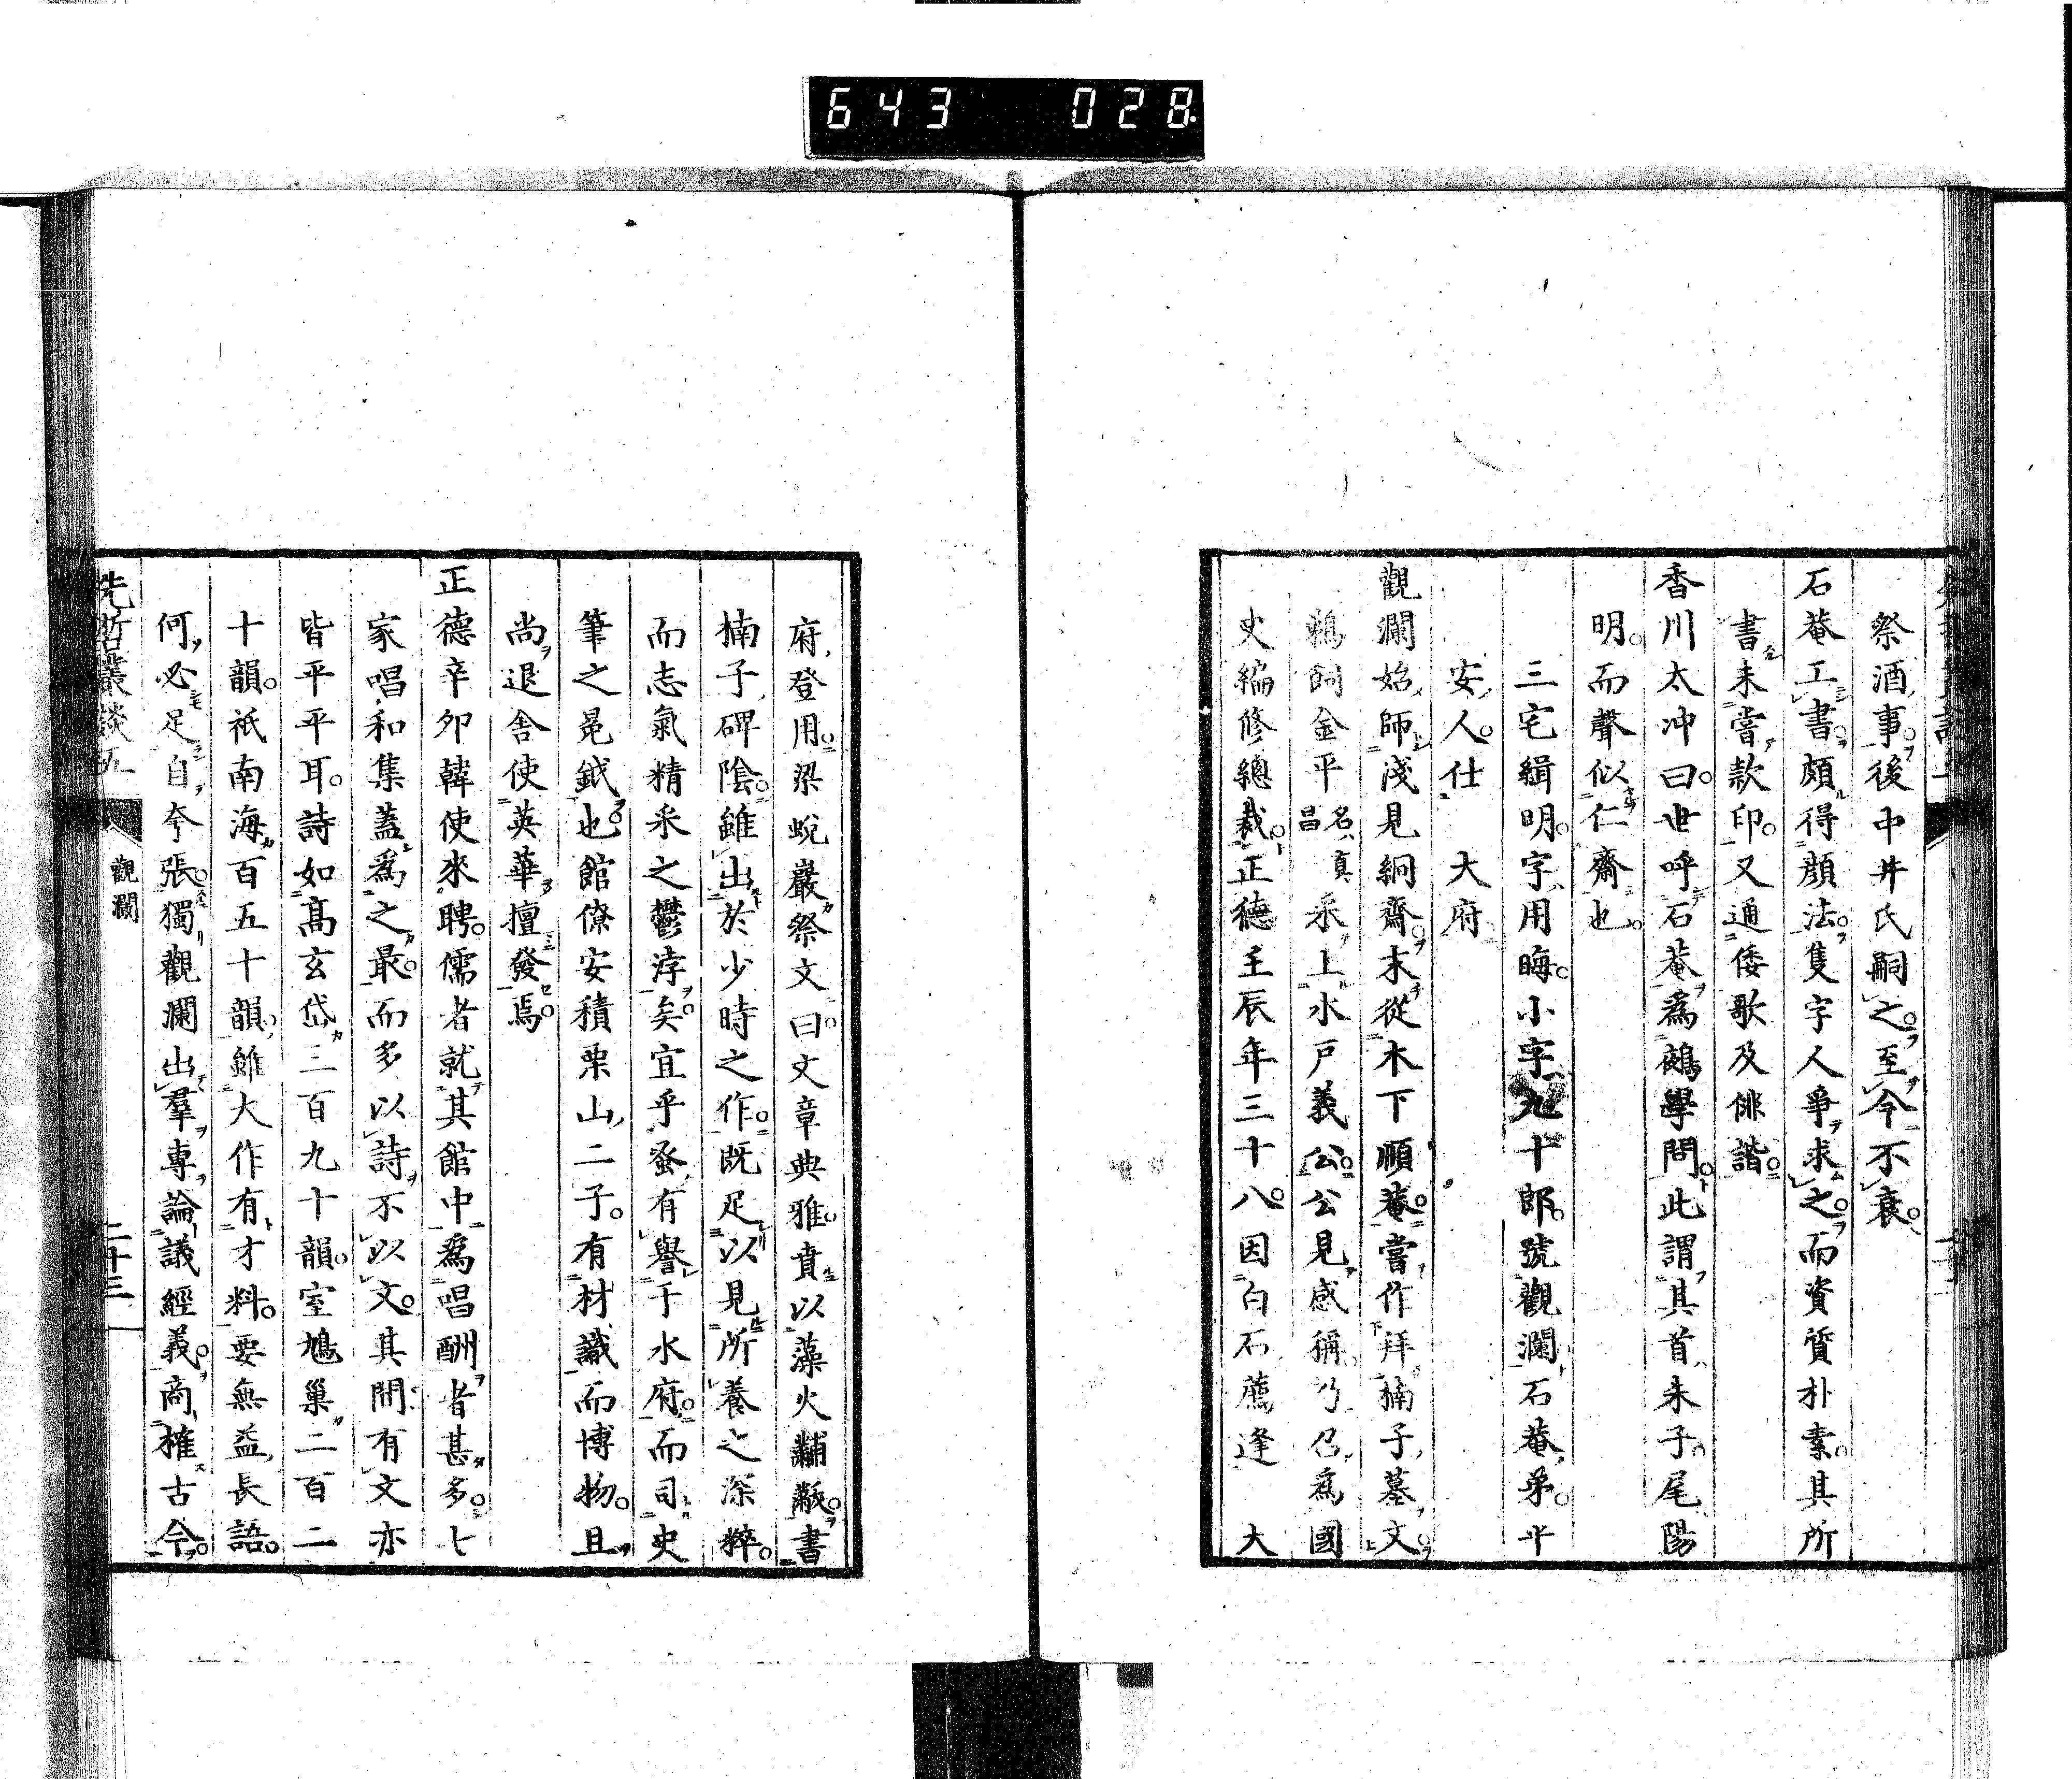 643 028
祭酒事後中井氏嗣之至今不衰
石菴工書頗得顏法隻字人爭求之而資質朴素其所
書未嘗款印又通倭歌及俳諧
香川太冲曰世呼石菴爲鵺學問此謂其首朱子尾陽
明而聲似仁齋也
三宅緝明字用晦小字九十郎號觀瀾石菴弟平
安人仕 大府
觀瀾始師淺見絅齋末從木下順菴嘗作拜楠子墓文
鵜飼金平名真昌釆上水戶義公公見感稱乃召爲國
史編修總裁正德壬辰年三十八因白石薦逢 大
府登用梁蛻巖祭文曰文章典雅賁以藻火黼黻書
楠子碑陰雖出於少時之作既足以見所養之深粹
而志氣精釆之鬱浡矣宜乎蚤有譽于水府而司史
筆之衮鉞也館僚安積栗山二子有材識而博物且
尚退舍使英華擅發焉
正德辛卯韓使來聘儒者就其館中爲唱酬者甚多七
家唱和集蓋爲之最而多以詩不以文其間有文亦
皆平平耳詩如高玄岱三百九十韻室鳩巢二百二
十韻祇南海百五十韻雖大作有才料要無益長語
何必足自夸張獨觀瀾出羣專論議經義商榷古今
先哲叢談五 觀瀾 二十三